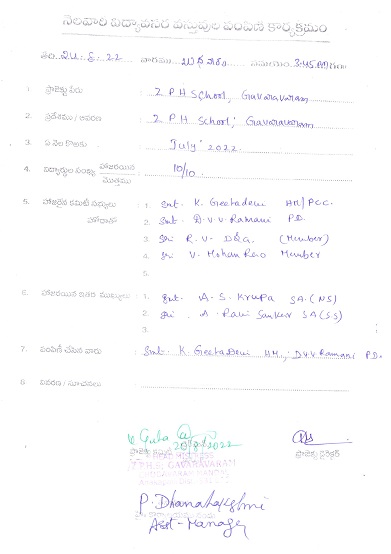 నెలవారి విద్యావసర వస్తువుల పంపిణి కార్యక్రమం
తేది 24.8.22 వారము బుధవారం సమయం 3.45 PM గంట
1. ప్రాజెక్టు పేరు : Z P H School, Gavaravaram
2. ప్రదేశము / ఆవరణ : Z P H School, Gavaravaram
3. ఏ నెల కొరకు : July 2022.
4. విద్యార్థుల సంఖ్య హాజరయిన / మొత్తము : 10/10.
5. హాజరైన కమిటి సభ్యులు : 1. Smt. K. Geetadevi HM/PCC.
హోదాతో 2. Smt. D.V.V Ramani P.D.
3. Sri R.V. (Member)
4. Sri V. Mohan Rao Member
5.
6. హాజరయిన ఇతర ముఖ్యులు : 1. Smt. A.S. Krupa SA.(NS)
2. Sri. A. Ravi Sankar SA(SS)
3.
7. పంపిణీ చేసిన వారు : Smt. K. Geetadevi HM, : D.V.V Ramani P.D.
8. వివరణ / సూచనలు :
8/2022
ప్రాజెక్టు డైరెక్టర్
Z.P.H.S. GAVARAVARAM
P. Dhanalakshmi
Asst-Manager